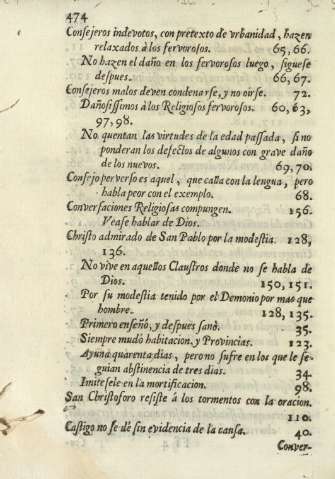 474
Consejeros indevotos, con pretexto de vrbanidad, hazen
relaxados à los fervorosos. 65, 66.
No hazen el daño en los fervorosos luego, siguese
despues. 66, 67.
Consejeros malos deven condenarse, y no oirse. 72.
Dañosissimos à los Religiosos fervorosos. 60, 63,
97, 98.
No quentan las virtudes de la edad passada, si no
ponderan los defectos de algunos con grave daño
de los nuevos. 69, 70.
Consejo perverso es aquel, que calla con la lengua, pero
habla peor con el exemplo. 68.
Conversaciones Religiosas compungen. 156.
Vease hablar de Dios.
Christo admirado de San Pablo por la modestia. 128,
136.
No vive en aquellos Claustros donde no se habla de
Dios. 150, 151.
Por su modestia tenido por el Demonio por mas que
hombre. 128, 135.
Primero enseñò, y despues sanò. 35.
Siempre mudò habitacion, y Provincias. 123.
Ayuna quarenta dias, pero no sufre en los que le se-
guian abstinencia de tres dias. 34.
Imitesele en la mortificacion. 98.
San Christoforo resiste à los tormentos con la oracion.
110.
Castigo no se dè sin evidencia de la causa. 40.
Conver-